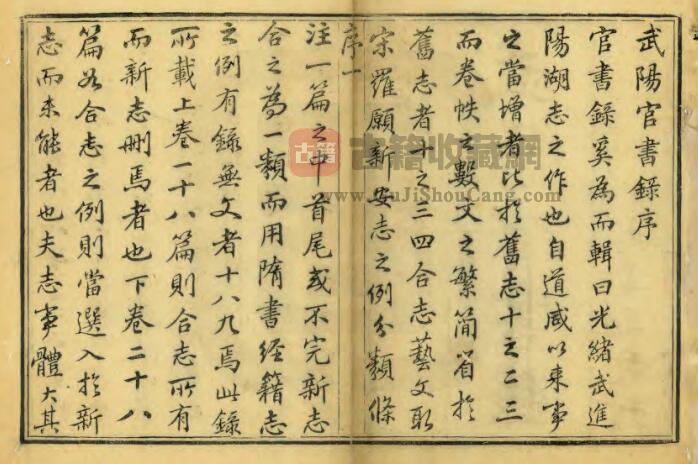 武陽官書錄序
官書錄奚為而輯曰光緒武進
陽湖志之作也自道咸以來事
之當增者比於舊志十之二三
而卷帙之數文之繁簡省於
舊志者十之三四合志藝文取
宋羅願新安志之例分類條
序一
注一篇之中首尾或不完新志
合之為一類而用隋書經籍志
之例有錄無文者十八九焉此錄
所載上卷一十八篇則合志所有
而新志刪焉者也下卷二十八
篇若合志之例則當選入於新
志而未能者也夫志事體大其
古籍
古籍收藏網
www.GuJiShouCang.com